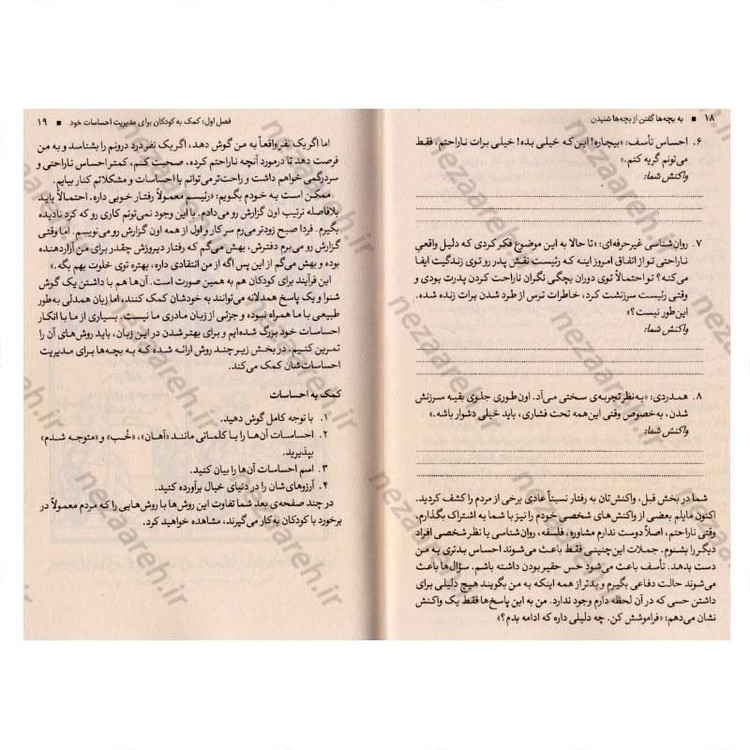 ۱۸ ■ به بچه‌ها گفتن از بچه‌ها شنیدن
۶. احساس تأسف: «بیچاره! این که خیلی بده! خیلی برات ناراحتم، فقط
می‌تونم گریه کنم.»
واکنش شما:
۷. روان‌شناسی غیرحرفه‌ای: «تا حالا به این موضوع فکر کردی که دلیل واقعیِ
ناراحتی تو از اتفاق امروز اینه که رئیست نقش پدر رو توی زندگیت ایفا
می‌کنه؟ تو احتمالاً توی دوران بچگی نگران ناراحت کردن پدرت بودی و
وقتی رئیست سرزنشت کرد، خاطرات ترس از طرد شدن برات زنده شده.
این‌طور نیست؟»
واکنش شما:
۸. همدردی: «به‌نظر تجربه‌ی سختی می‌آد. اون‌طوری جلوی بقیه سرزنش
شدن، به‌خصوص وقتی این‌همه تحت فشاری، باید خیلی دشوار باشه.»
واکنش شما:
شما در بخش قبل، واکنش‌تان به رفتار نسبتاً عادی برخی از مردم را کشف کردید.
اکنون مایلم بعضی از واکنش‌های شخصی خودم را نیز با شما به اشتراک بگذارم.
وقتی ناراحتم، اصلاً دوست ندارم مشاوره، فلسفه، روان‌شناسی یا نظر شخصی افراد
دیگر را بشنوم. جملات این‌چنینی فقط باعث می‌شوند احساس بدتری به من
دست بدهد. تأسف باعث می‌شود حس حقیر بودن داشته باشم. سؤال‌ها باعث
می‌شوند حالت دفاعی بگیرم و بدتر از همه اینکه به من بگویند هیچ دلیلی برای
داشتن حسی که در آن لحظه دارم وجود ندارد. من به این پاسخ‌ها فقط یک واکنش
نشان می‌دهم: «فراموشش کن. چه دلیلی داره که ادامه بدم؟»
فصل اول: کمک به کودکان برای مدیریت احساسات خود ■ ۱۹
اما اگر یک نفر واقعاً به من گوش دهد، اگر یک نفر درد درونم را بشناسد و به من
فرصت دهد تا درمورد آنچه ناراحتم کرده، صحبت کنم، کمتر احساس ناراحتی و
سردرگمی خواهم داشت و راحت‌تر می‌توانم با احساسات و مشکلاتم کنار بیایم.
ممکن است به خودم بگویم: «رئیسم معمولاً رفتار خوبی داره. احتمالاً باید
بلافاصله ترتیب اون گزارش رو می‌دادم. با این وجود نمی‌تونم کاری رو که کرد نادیده
بگیرم. فردا صبح زودتر می‌رم سر کار و اول از همه اون گزارش رو می‌نویسم. اما وقتی
گزارش رو می‌برم دفترش، بهش می‌گم که رفتار دیروزش چقدر برای من آزاردهنده
بوده و بهش می‌گم از این پس اگه از من انتقادی داره، بهتره توی خلوت بهم بگه.»
این فرآیند برای کودکان هم به همین صورت است. آن‌ها هم با داشتن یک گوش
شنوا و یک پاسخ همدلانه می‌توانند به خودشان کمک کنند، اما زبان همدلی به‌طور
طبیعی با ما همراه نبوده و جزئی از زبان مادری ما نیست. بسیاری از ما با انکار
احساسات خود بزرگ شده‌ایم و برای بهتر شدن در این زبان، باید روش‌های آن را
تمرین کنیم. در بخش زیر چند روش ارائه شده که به بچه‌ها برای مدیریت
احساسات‌شان کمک می‌کند.
کمک به احساسات
۱. با توجه کامل گوش دهید.
۲. احساسات آن‌ها را با کلماتی مانند «آهان»، «خُب» و «متوجه شدم»
بپذیرید.
۳. اسم احساسات آن‌ها را بیان کنید.
۴. آرزوهای‌شان را در دنیای خیال برآورده کنید.
در چند صفحه‌ی بعد شما تفاوت این روش‌ها با روش‌هایی را که مردم معمولاً در
برخورد با کودکان به‌کار می‌گیرند، مشاهده خواهید کرد.
nezaareh.ir